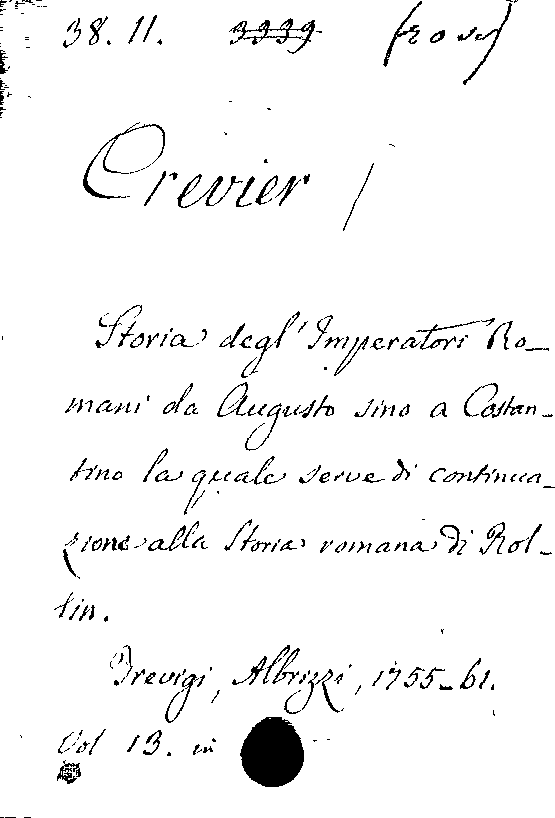 38. 11. 3339
Crevier /
Storia degl' Imperatori Ro_
mani da Augusto sino a Costan_
tino la quale serve di continua_
zione alla Storia romana di Rol_
lin.
Trevigi, Albrizzi, 1755_61.
Vol 13. in